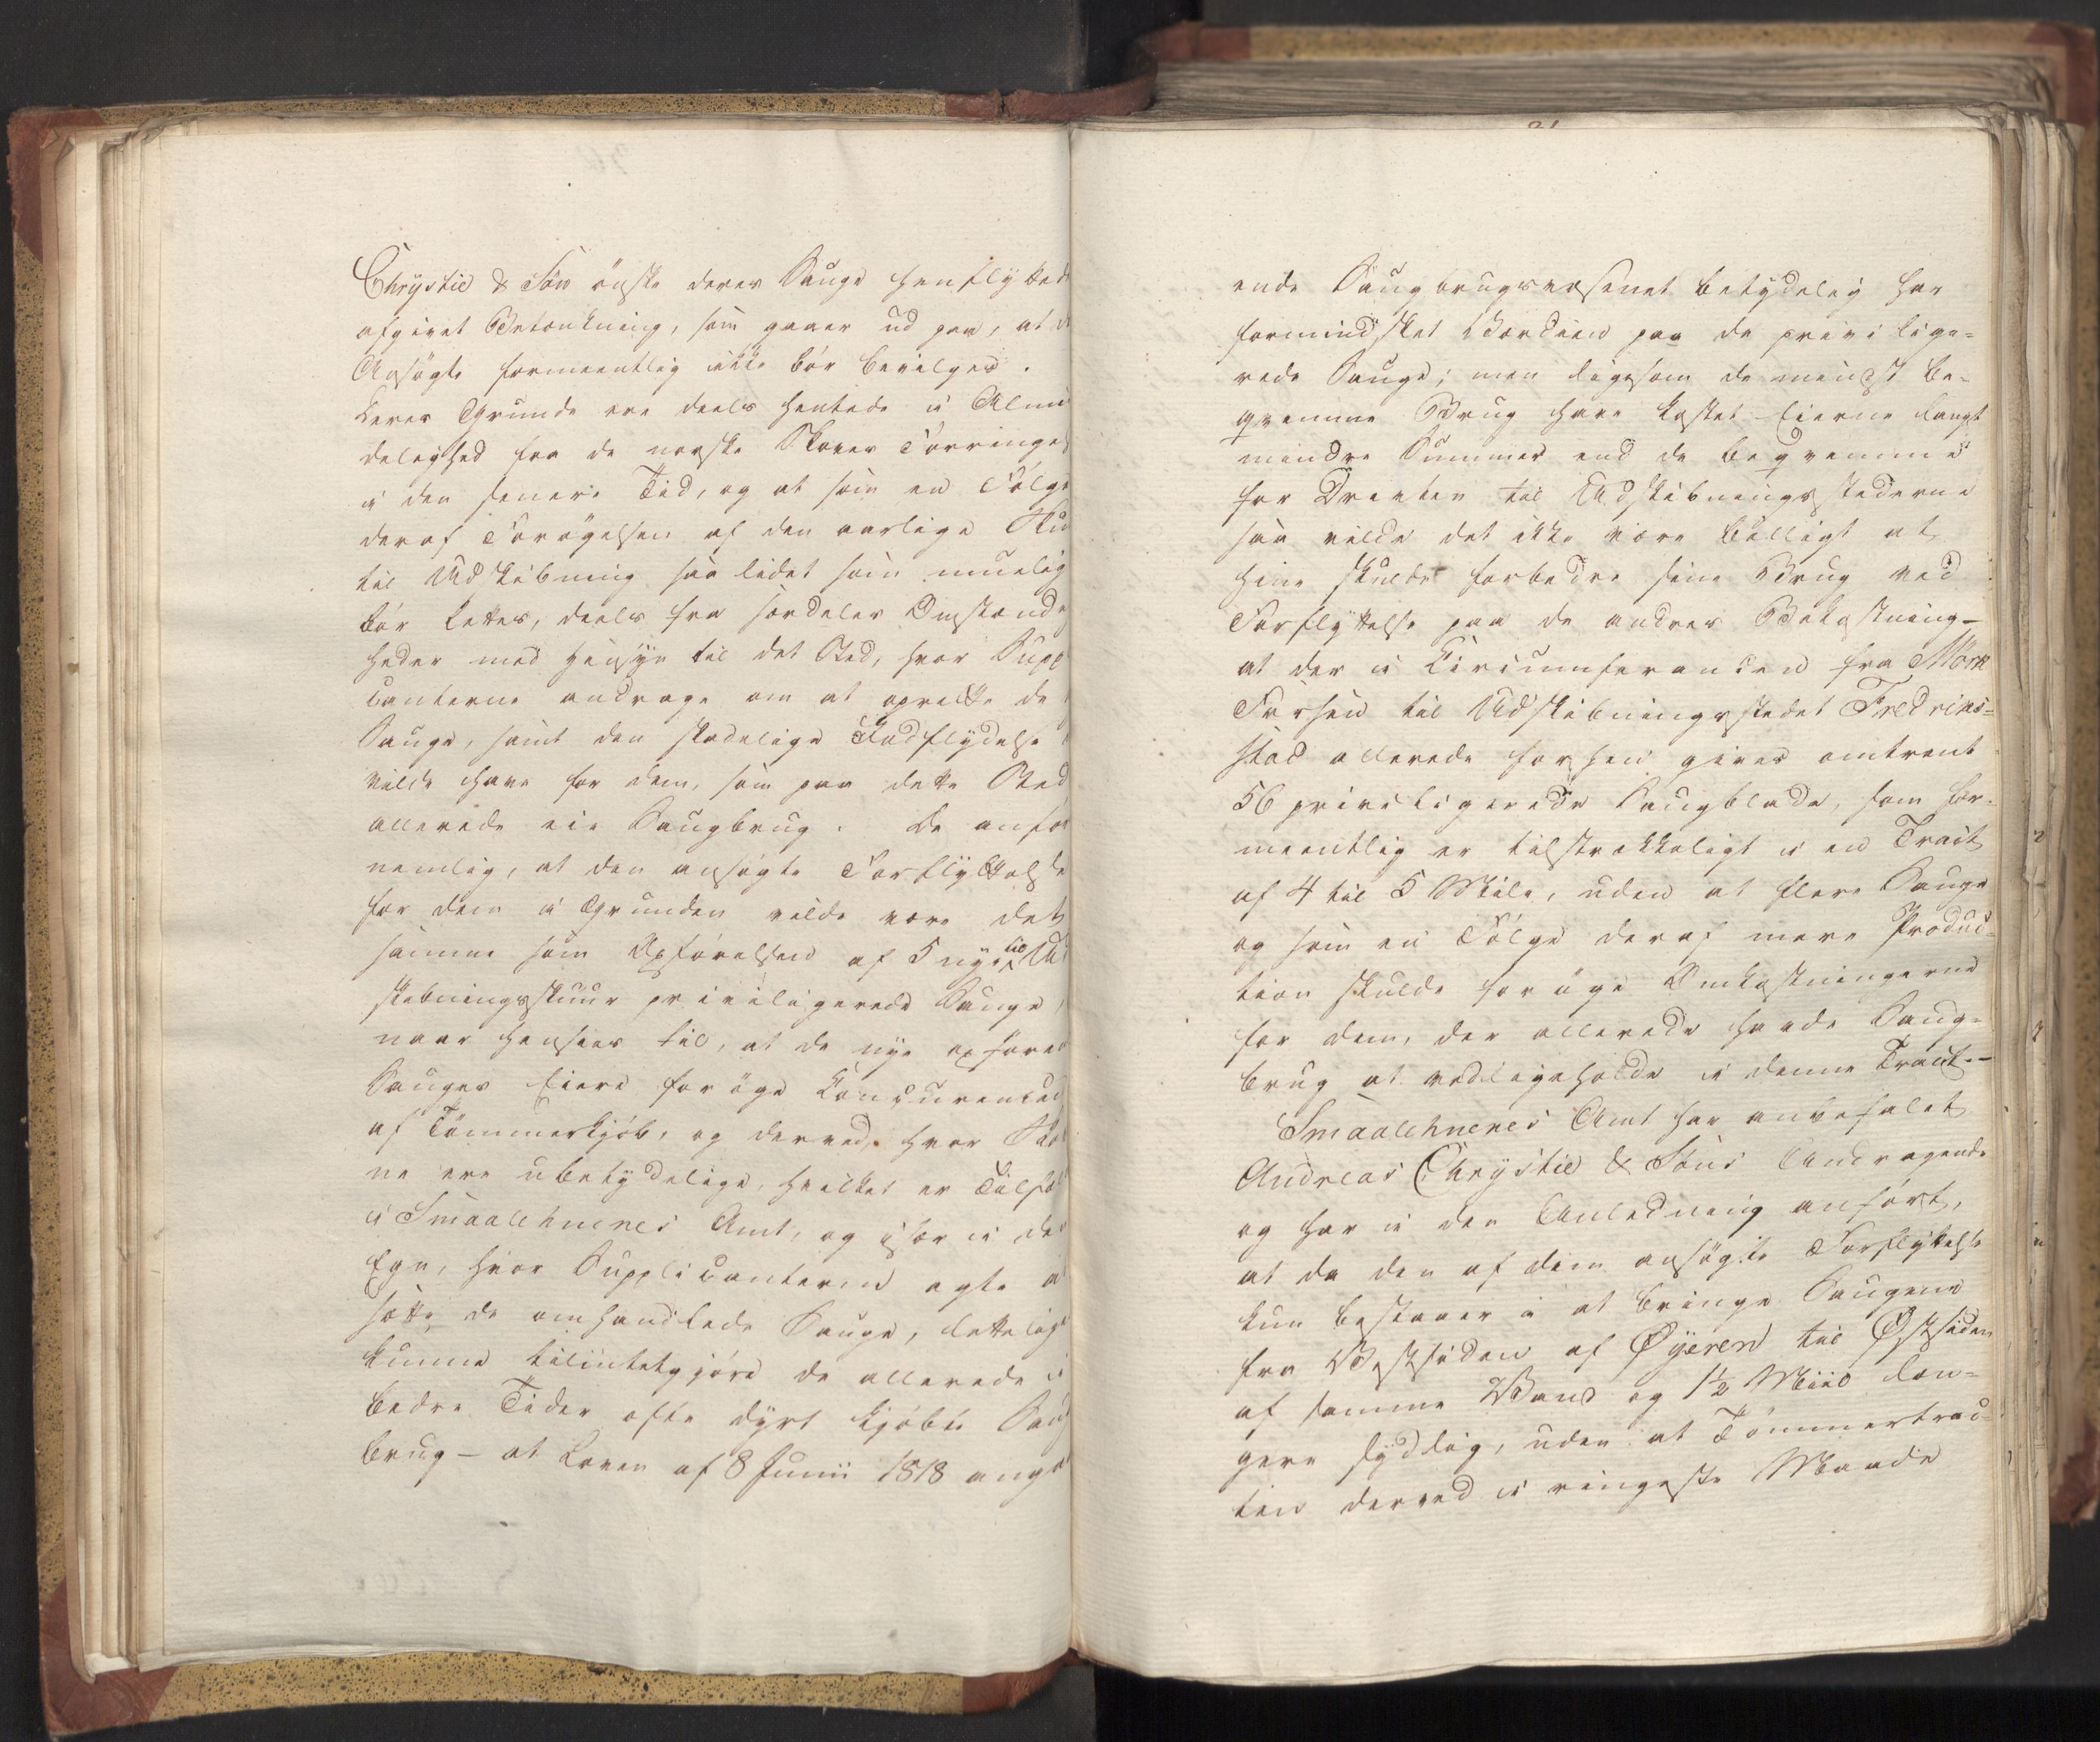 Chrystie & Søn ønske deres Sauge henflyttede
afgivet Betænkning, som gaaer ud paa, at d
Ansøgte formeentlig ikke bør bevilges.
Deres Grunde ere deels hentede i Almi
delighed fra de norske Skoves Forringe
i den senere Tid, og at som en Følge
deraf Forøgelsen af den aarlige Sku
til Udskibning saa lidet som muelig
bør lettes, deels fra særdeles Omstænd
heder med Hensyn til det Sted, hvor Suppl
canterne andrage om at oprette de
Sauge, samt den skadelige Indflydelse
vilde have for dem, som paa dette Sted
allerede eie Saugbrug. De anfø
nemlig, at den ansøgte Forflyttelse
for dem i Grunden vilde være det
samme som Opførelsen af 5 nye til Ud
skibningsskuur priviligerede Sauge,
naar henses til, at de nye opføred
Sauges Eiere forøge Concurencen
af Tømmerkjøb, og derved, hvor Sko
ne ere ubetydelige, hvilket er Tilfæl
i Smaalehnenes Amt, og især i de
Egn, hvor Supplicanterne agte a
sætte de omhandlede Sauge, letteligt
kunne tilintetgjøre de allerede i
bedre Tider ofte dyrt kjøbte Saug
brug – at Loven af 8 Junii 1818 angaa
ende Saugbrugsvæsenet betydelig har
formindsket Værdien paa de privilige-
rede Sauge; men ligesom de mindst be-
qvemme Brug have kostet Eierne langt
mindre Summer end de beqvemme
for Driften til Udskibningsstederne
saa vilde det ikke være billigt at
hine skulde forbedre sine Brug ved
Forflyttelse paa de andres Bekostning –
at der i Circumferencen fra Mørk
Forsen til Udskibningsstedet Fredriks-
stad allerede forhen gives omtrent
56 priviligerede Saugblade, som for-
meentlig er tilstrækkeligt i en Tract
af 4 til 5 Mile, uden at flere Sauge
og som en Følge deraf mere Produc-
tion skulde forøge Omkostningerne
for dem, der allerede havde Saug-
brug at vedligeholde i denne Tract. –
Smaalehnenes Amt har anbefalet
Andreas Chrystie & Søns Andragende
og har i den Anledning anført,
at da den af dem ansøgte Forflyttelse
kun bestaaer i at bringe Saugene
fra Vestsiden af Øyeren til Østsiden
af samme Vand og 1½ Miil læn-
gere sydlig, uden at Tømmertrac-
ten derved i ringeste Maade